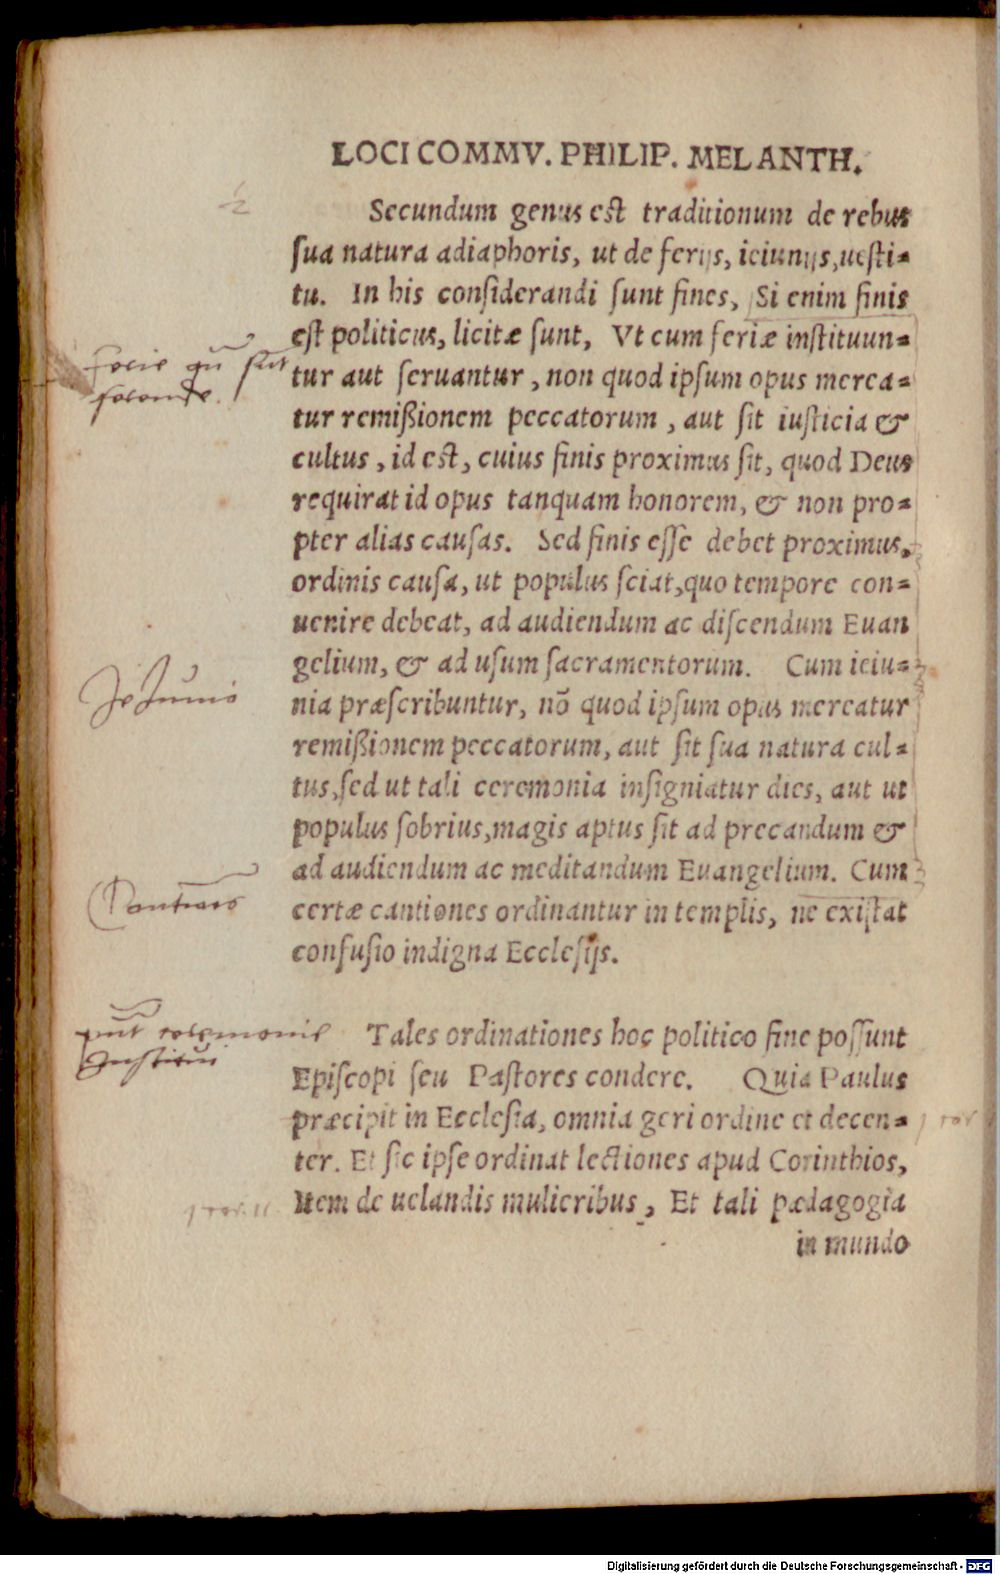 LOCI COMMV. PHILIP. MELANTH.
2
Secundum genus est traditionum de rebus
sua natura adiaphoris, ut de ferijs, ieiunijs, uesti-
tu. In his considerandi sunt fines, Si enim finis
est politicus, licitæ sunt, Vt cum feriæ instituun-
tur aut seruantur, non quod ipsum opus merea-
tur remißionem peccatorum, aut sit iusticia &
cultus, id est, cuius finis proximus sit, quod Deus
requirat id opus tanquam honorem, & non pro-
pter alias causas. Sed finis esse debet proximus,
ordinis causa, ut populus sciat, quo tempore con-
uenire debeat, ad audiendum ac discendum Euan
gelium, & ad usum sacramentorum. Cum ieiu-
nia præscribuntur, nō quod ipsum opus mereatur
remißionem peccatorum, aut sit sua natura cul-
tus, sed ut tali ceremonia insigniatur dies, aut ut
populus sobrius, magis aptus sit ad precandum &
ad audiendum ac meditandum Euangelium. Cum
certæ cantiones ordinantur in templis, ne existat
confusio indigna Ecclesijs.
Tales ordinationes hoc politico fine possunt
Episcopi seu Pastores condere. Quia Paulus
præcipit in Ecclesia, omnia geri ordine et decen-
ter. Et sic ipse ordinat lectiones apud Corinthios,
Item de uelandis mulieribus, Et tali pædagogia
in mundo
Jejunia
Institui
1 cor. 11.
1 cor
Digitalisierung gefördert durch die Deutsche Forschungsgemeinschaft - DFG